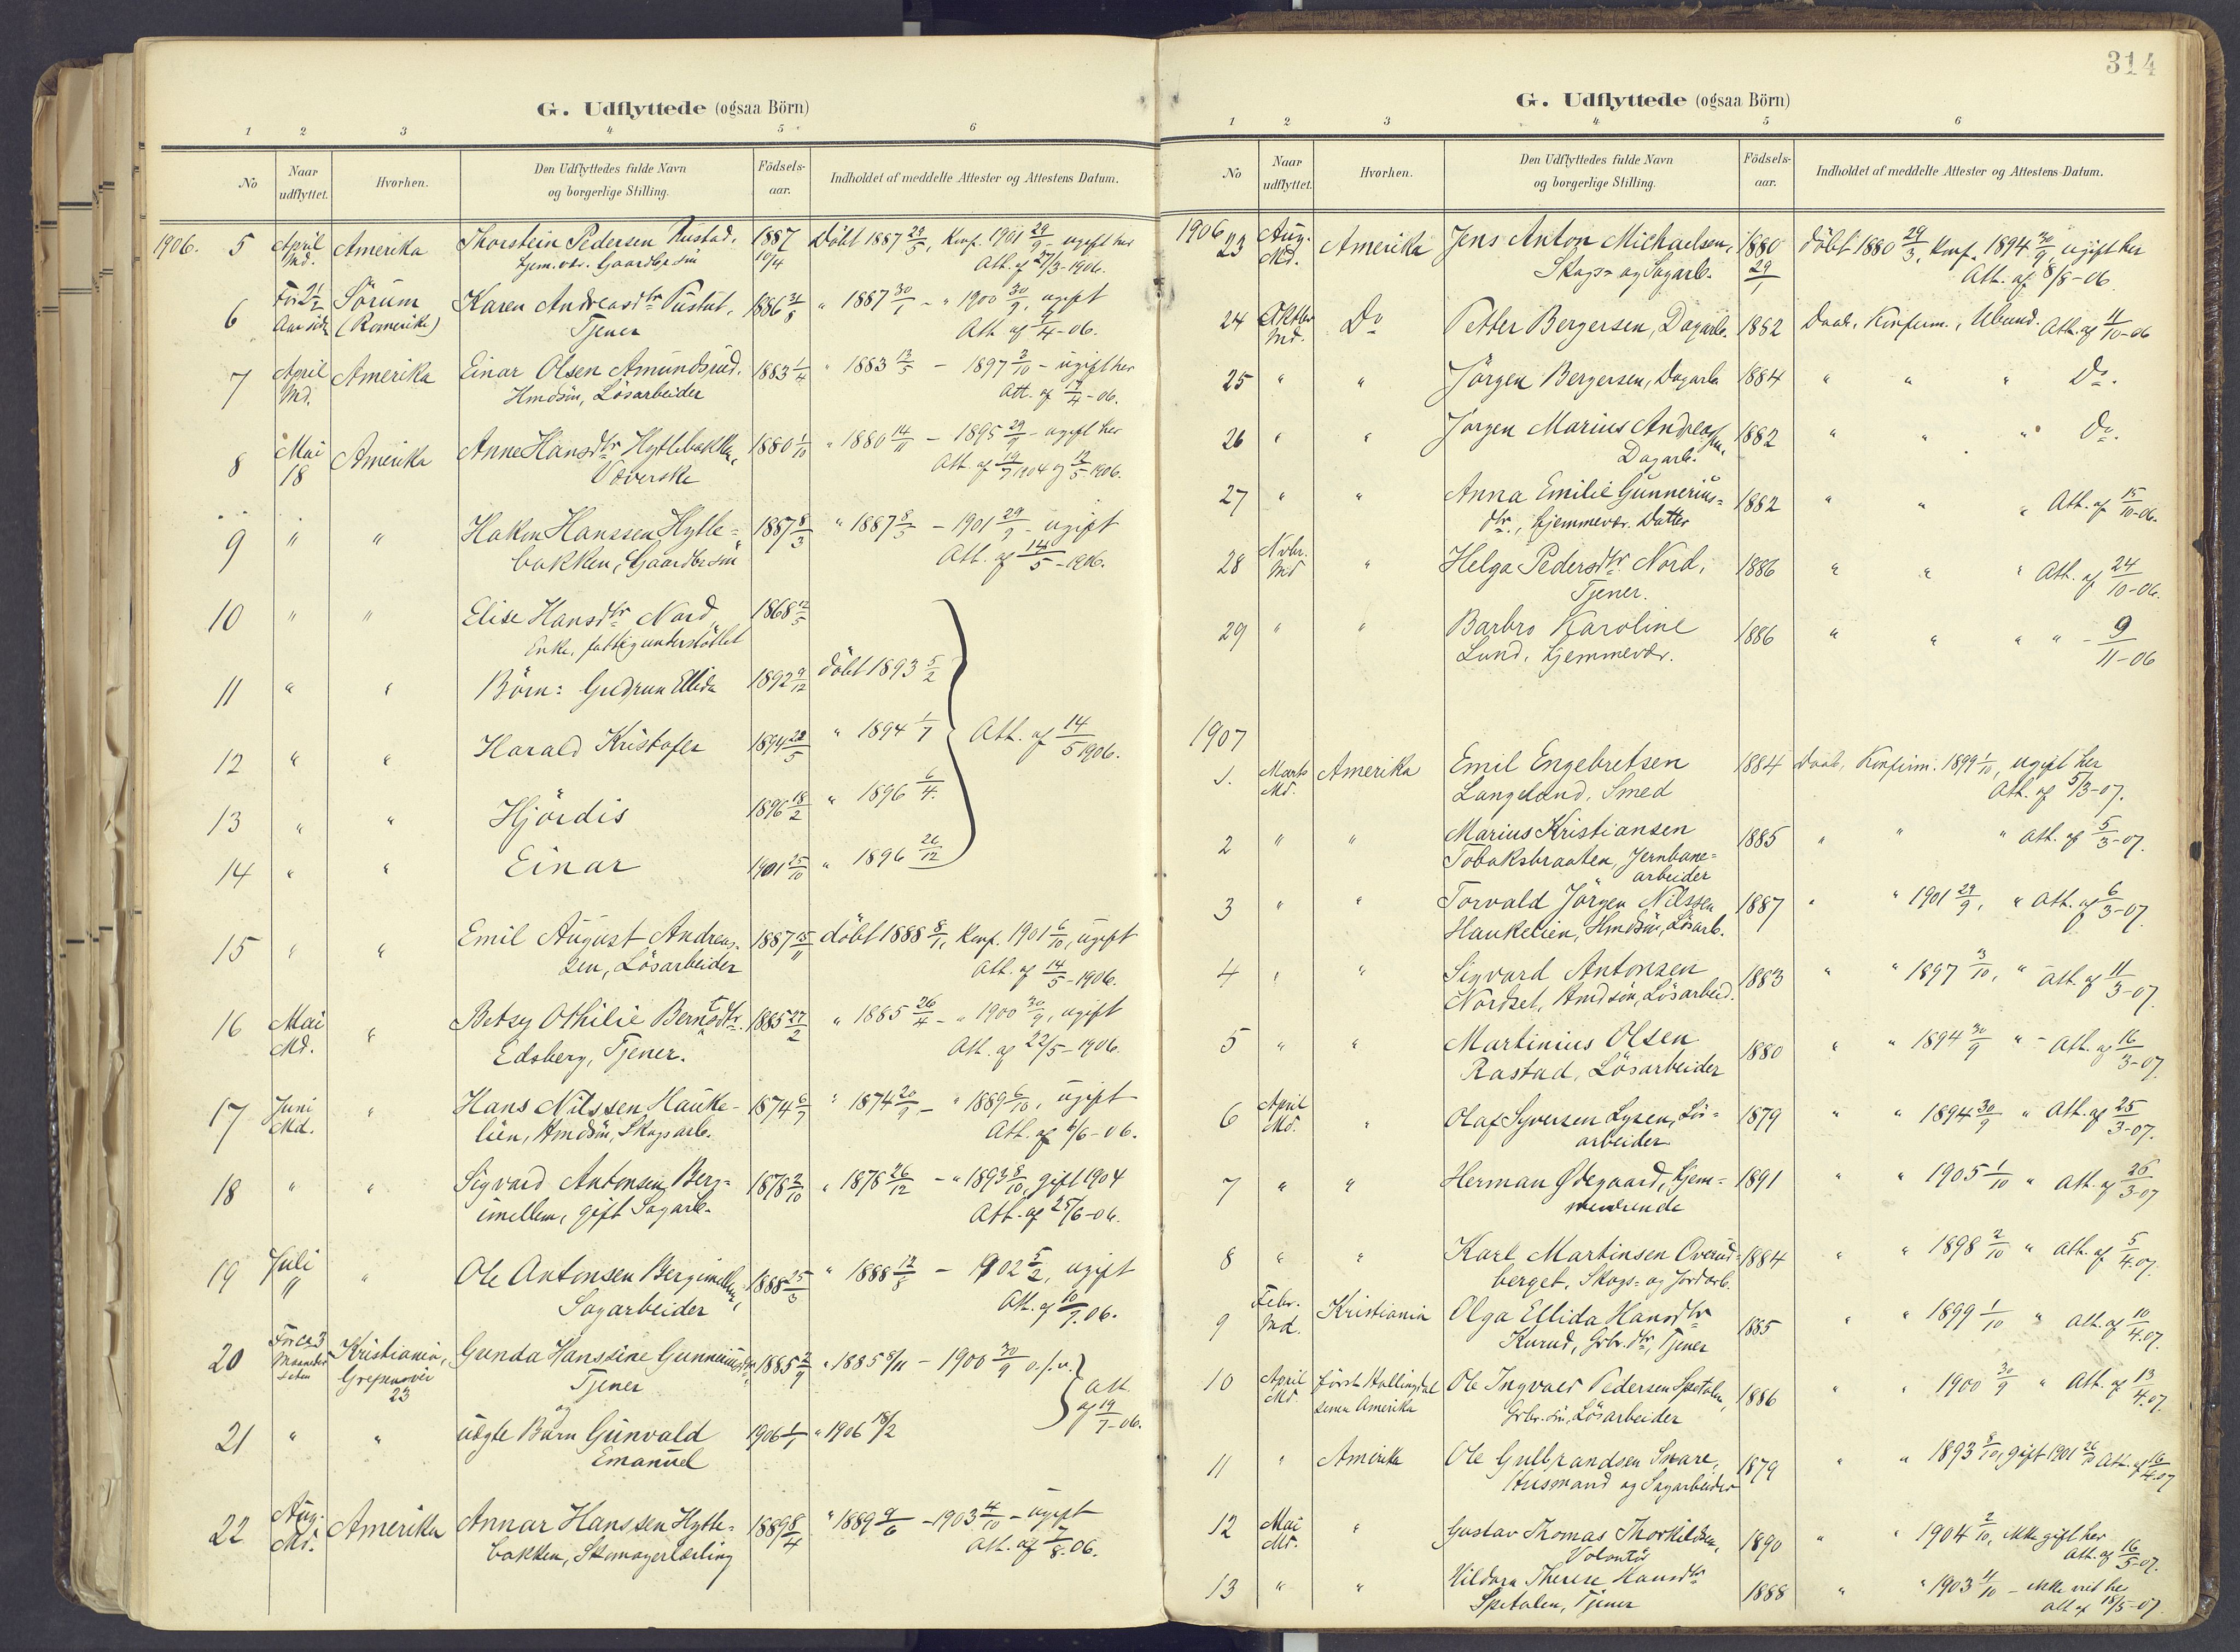 G. Udflyttede (ogsaa Börn)
1 2 3 4 5 6
No
Naar udflyttet.
Hvorhen.
Den Udflyttedes fulde Navn og borgerlige Stilling.
Födsels-aar.
Indholdet af meddelte Attester og Attestens Datum.
1906. 5 April Md. Amerika Thorstein Pedersen Rustad, 1887 10/4 Döbt 1887 29/5, Konf. 1901 29/9 - ugift her
hjem.vær. Gaardbr.sön Att. af 27/3-1906.
6 För 2 1/2 Aar siden Sörum (Romerike) Karen Andreasdtr Pustut, 1886 31/8 " 1887 30/1 - " 1900 30/9, ugift
Tjener Att. af 4/4-06.
7 April Md. Amerika Einar Olsen Amundsrud, 1883 1/4 " 1883 13/5 - 1897 3/10 - ugift her
Hmdsön, Lösarbeider Att. af 17/4-06.
8 Mai 18 Amerika Anne Hansdtr Hyttebakken, 1880 1/10 " 1880 14/11 - 1895 29/9 - ugift her
Væverske Att. af 19/7 1904 og 12/5-1906.
9 " " Hakon Hanssen Hytte- 1887 8/3 " 1887 8/5 - 1901 29/9 - ugift
bakken, Gaardbrsön Att. af 14/5-1906.
10 " " Elise Hansdtr Nord, 1868 12/5
Enke, fattigunderstöttet
11 " " Börn: Gudrun Ellida 1892 9/12 döbt 1893 5/2
12 " " Harald Kristofer 1894 22/5 " 1894 1/7 Att. af 14/5 1906.
13 " " Hjördis 1896 18/2 " 1896 6/4.
14 " " Einar 1901 25/10 " 1896 26/12
15 " " Emil August Andreas- 1887 15/11 döbt 1888 8/1, Konf. 1901 6/10, ugift
sen, Lösarbeider Att. af 14/5-1906.
16 Mai Md. " Betsy Othilie Berntsdtr. 1885 27/2 " 1885 26/4 - " 1900 30/9, ugift
Edsberg, Tjener. Att. af 22/5-1906.
17 Juni Md. " Hans Nilssen Hauke- 1874 6/7 " 1874 20/9 - " 1889 6/10, ugift
lien, Hmdsön, Skogsarb. Att. af 6/6-06.
18 " " Sigvard Antonsen Berg- 1878 2/10 " 1878 26/12 - " 1893 8/10, gift 1904
imellem, gift Sagarb. Att. af 25/6-06.
19 Juli " " Ole Antonsen Bergimellem, 1888 25/3 " 1888 12/8 - 1902 5/2, ugift
Sagarbeider Att. af 10/7.06.
20 För ca 3 Maaneder siden Kristiania, 23 Gunda Hanssine Gunneriusdtr, 1885 2/9 " 1885 8/11 - 1900 30/9 o.f.v.
Tjener Att. af 19/7-06.
og
21 " " uægte Barn Gunvald 1906 1/1 " 1906 18/2
Emanuel
22 Aug. Md. Amerika Annar Hanssen Hytte- 1889 8/4 " 1889 9/6 - 1903 4/10 - ugift
bakken, Skomagerlærling Att. af 7/8.06.
314
G. Udflyttede (ogsaa Börn)
1 2 3 4 5 6
No
Naar udflyttet.
Hvorhen.
Den Udflyttedes fulde Navn og borgerlige Stilling.
Födsels-aar.
Indholdet af meddelte Attester og Attestens Datum.
1906 23 Aug. Md. Amerika Jens Anton Michaelsen, 1880 29/1 döbt 1880 29/3, Konf. 1894 30/9, ugift her
Skogs- og Sagarb. Att. af 8/8-06
24 Oktbr Md. Do Petter Bergersen, Dagarb. 1882 Daab, Konfirm., Ubund. Att. af 11/10-06
25 " " Jörgen Bergersen, Dagarb. 1884 " " " Do.
26 " " Jörgen Marius Andreassen, 1882 " " " Do.
Dagarb.
27 " " Anna Emilie Gunnerius- 1882 " " " Att. af 15/10-06.
dtr., hjemmevær. Datter
28 Novbr. Md " Helga Pedersdtr Nord, 1886 " " " Att. af 24/10-06.
Tjener.
29 " " Barbro Karoline 1886 " " " " - 9/11-06
Lund, hjemmevær.
1907
1. Marts Md. Amerika Emil Engebretsen 1884 Daab, Konfirm. 1899 1/10, ugift her
Langeland, Smed Att. af 5/3-07.
2 " " Marius Kristiansen 1885 " " " Att. af 5/3-07.
Tobaksbraaten, Jernbane-
arbeider
3 " " Torvald Jörgen Nilssen 1887 " " 1901 29/9, " Att. af 6/3-07
Haukelien, Hmdsön, Lösarb.
4 " " Sigvard Antonsen 1883 " " 1897 3/10, " Att. af 11/3-07.
Nordset, Hmdsön, Lösarbeid.
5 " " Martinius Olsen 1880 " " 1894 30/9 " - Att. af 16/3-07
Rastad, Lösarbeider
6 April Md. " Olaf Syversen Lysen, Lös- 1879 " " 1894 30/9 " Att. af 25/3-07.
arbeider
7 " " Herman Ødegaard, hjem- 1891 " " 1905 1/10 " Att. af 26/3-07
meværende
8 " " Karl Martinsen Overud- 1884 " " 1898 2/10 " Att. af 5/4.07.
berget, Skogs- og Jordarb.
9 Febr. Md. Kristiania Olga Ellida Hansdtr 1885 " " 1899 1/10 " Att. af 10/4.07.
Kurud, Grbr.dtr, Tjener
10 April Md. först Hallingdal senere Amerika Ole Ingvald Pedersen Spetalen, 1886 " " 1900 30/9 " Att. af 13/4.07.
Grbr.sön, Lösarbeider
11 " Amerika Ole Gulbrandsen Snare, 1879 " " 1893 8/10, gift 1901 26/10 Att. af 16/4.07
Husmand og Sagarbeider
12 Mai Md. " Gustav Thomas Thorkildsen, 1890 " " 1904 2/10, ikke gift her
Volontör Att. af 16/5-07.
13 " " Therese Hansdtr 1888 " " 1903 4/10 - ikke her
Spetalen, Tjener Att. af 18/5-07.